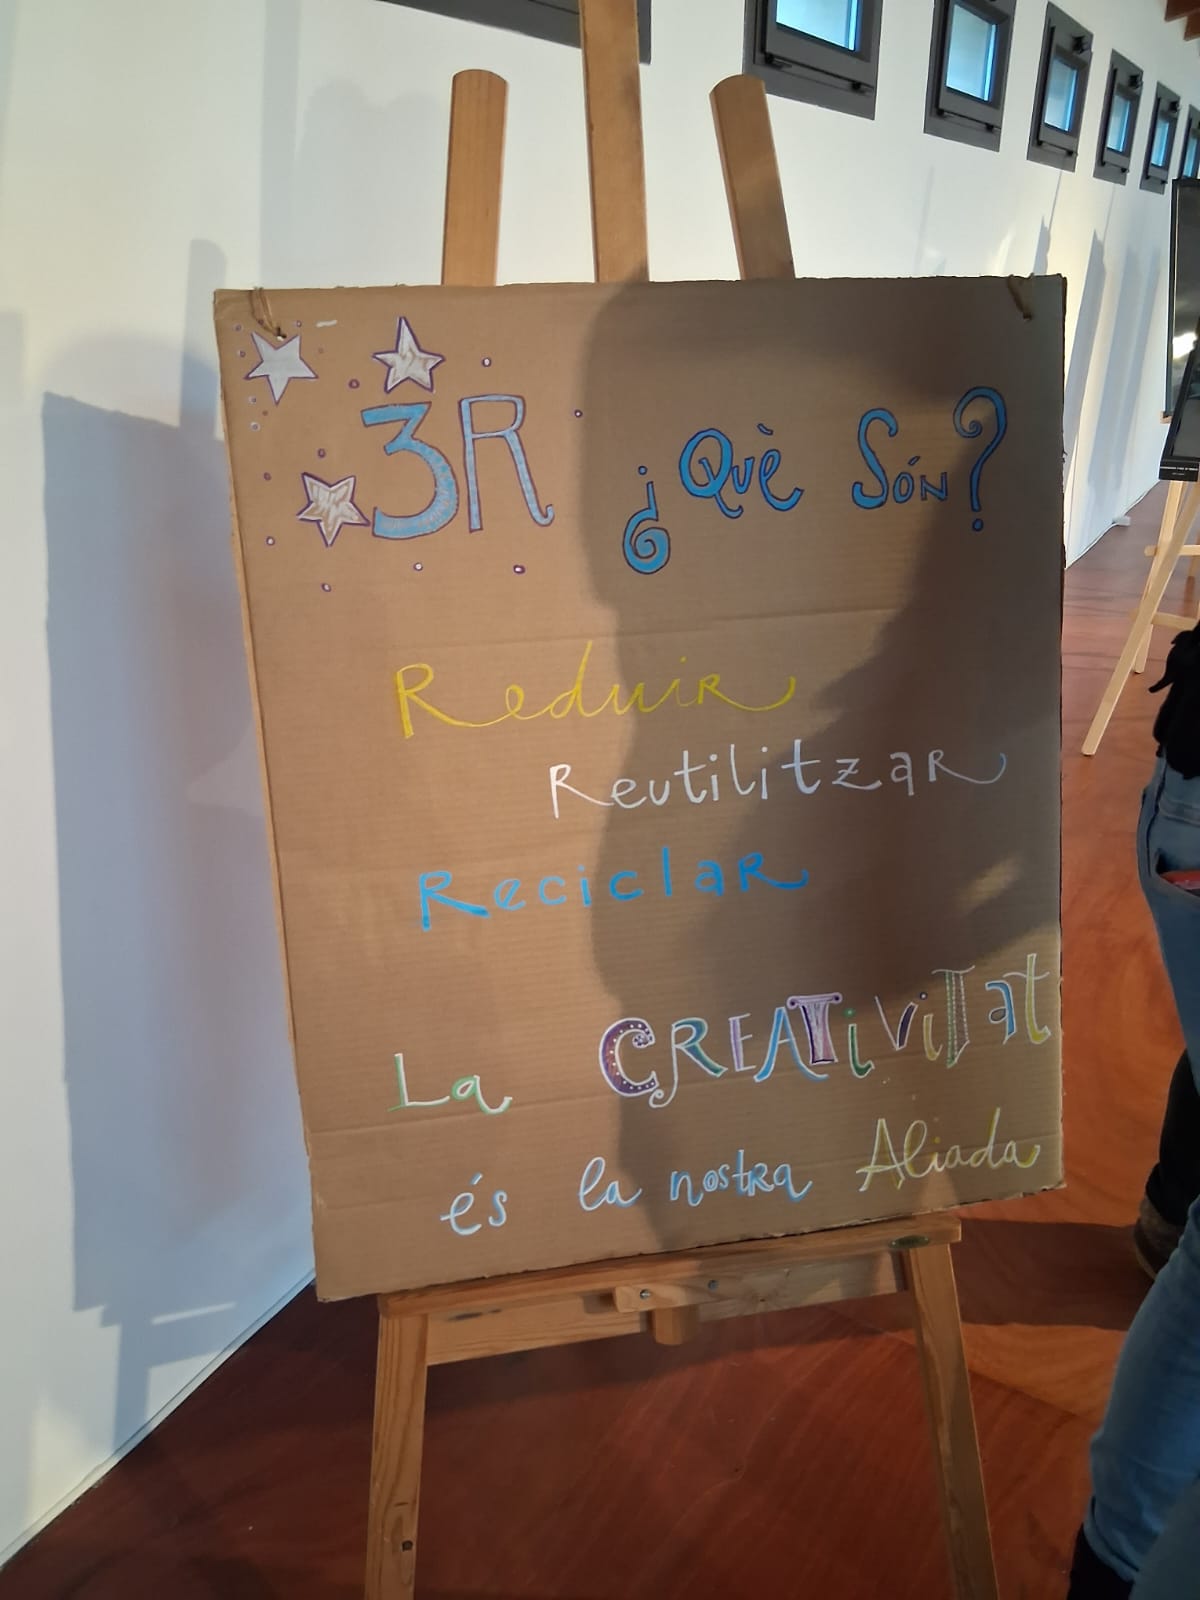 3R ¿Què Són?
Reduir
Reutilitzar
Reciclar
La CREATiViTat
és la nostra Aliada